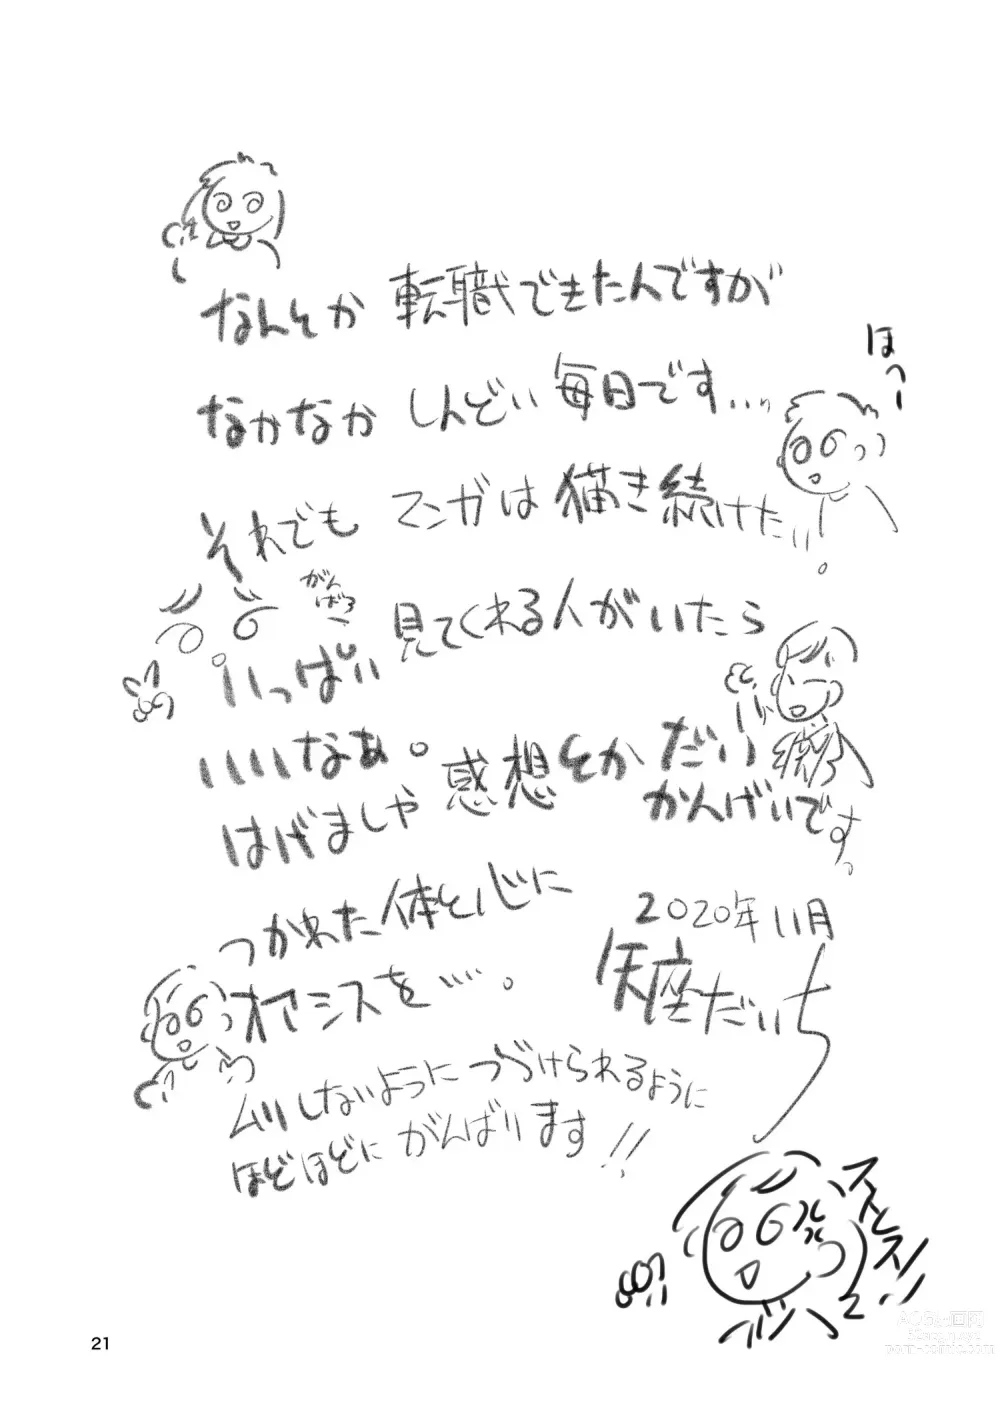 なんとか 転職できたんですが
なかなか しんどい 毎日です…
ほへー
それでも マンガは 描き続けたい
がん
ばろー
いっぱい 見てくれる人がいたら
いいなぁ。
はげましや 感想とか だい
かんげいです。
つかれた 体と心に
オアシスを…。
2020年11月
矢座だいち
ムリしないように つづけられるように
ほどほどに がんばります!!
21